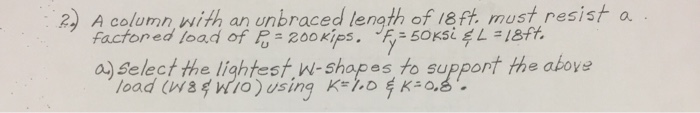 2.) A column with an unbraced length of 18ft. must resist a
factored load of Pu = 200 Kips. Fy = 50Ksi & L = 18ft.
a.) Select the lightest W-shapes to support the above
load (W8 & W10) using K=1.0 & K=0.8.